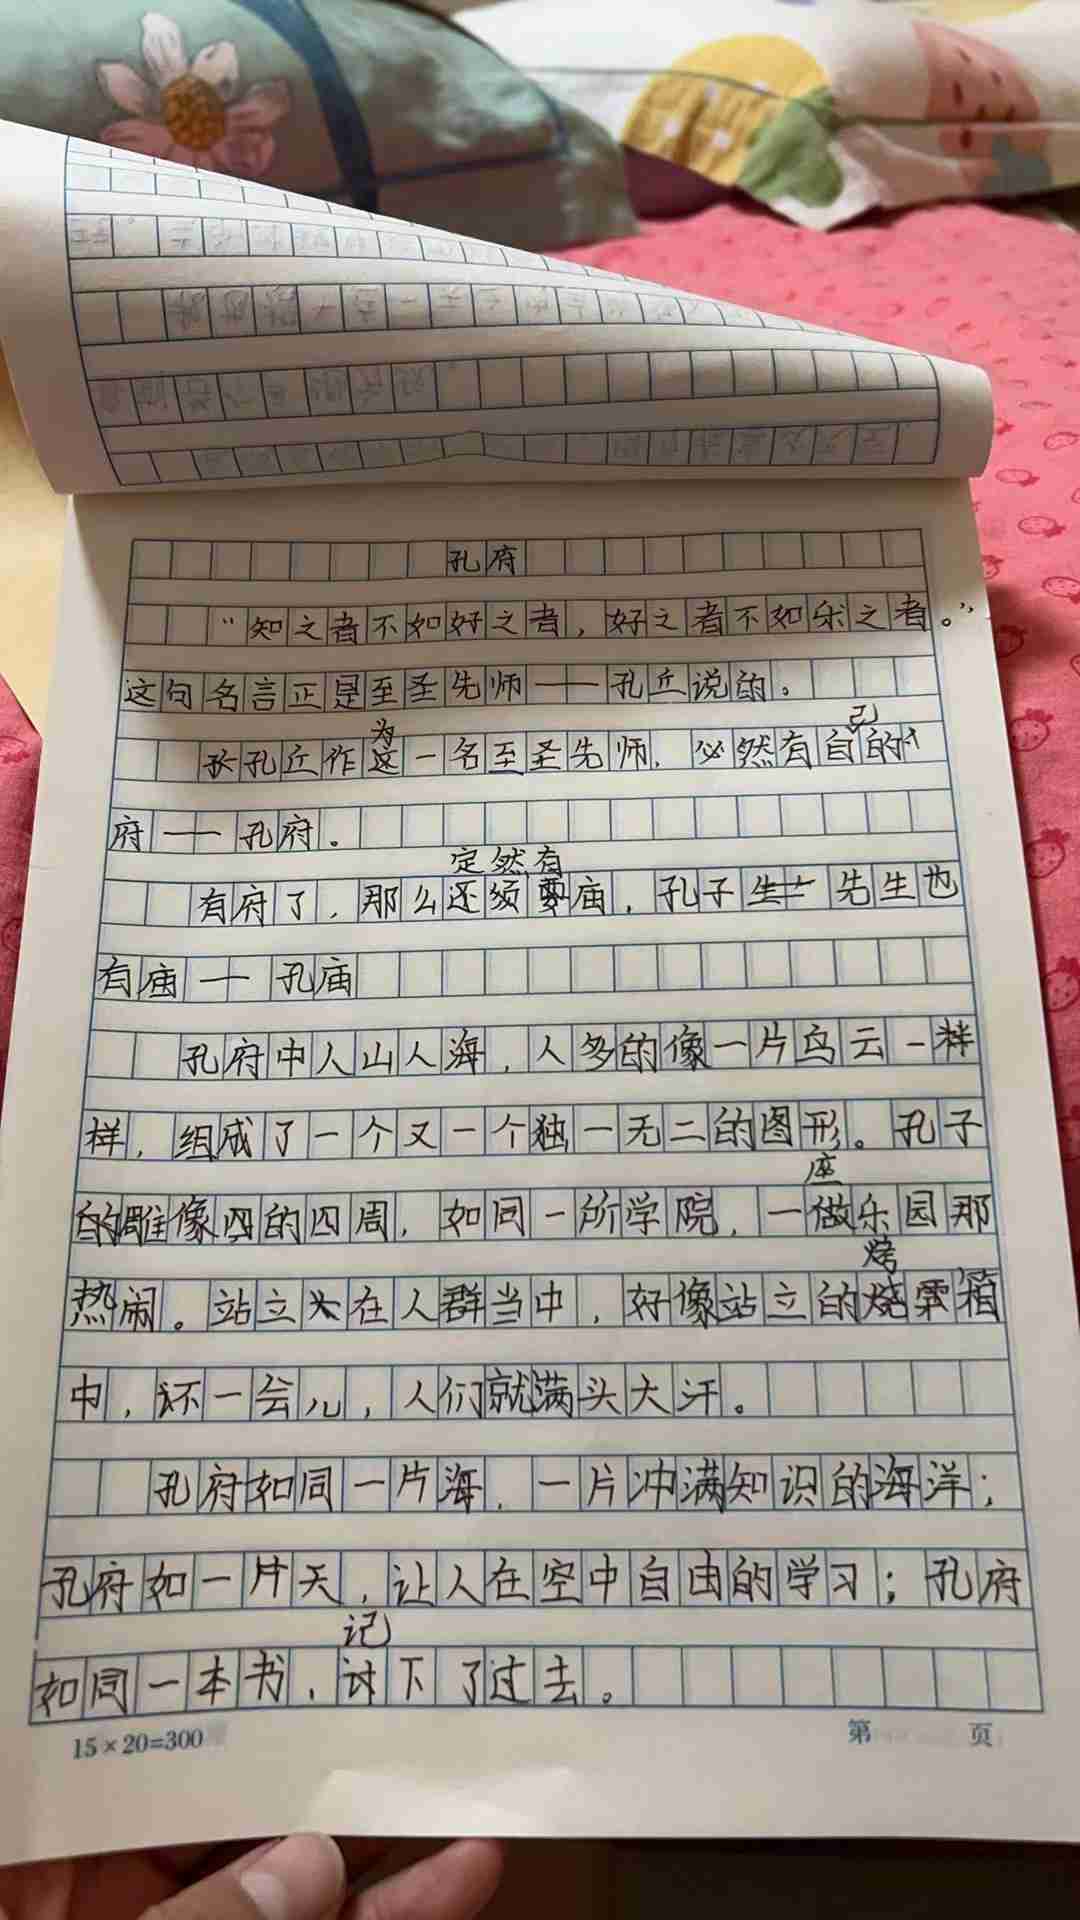 孔府
“知之者不如好之者，好之者不如乐之者。”
这句名言正是至圣先师——孔丘说的。
为
己
孔丘作这一名至圣先师，必然有自的个
府——孔府。
定然有
有府了，那么还须要庙，孔子生先生也
有庙——孔庙
孔府中人山人海，人多的像一片乌云一样
样，组成了一个又一个独一无二的图形。孔子
座
的雕像四的四周，如同一所学院，一做乐园那
烤
热闹。站立在人群当中，好像站立的烧箱
中，还一会儿，人们就满头大汗。
孔府如同一片海，一片冲满知识的海洋；
孔府如一片天，让人在空中自由的学习；孔府
记
如同一本书，讨下了过去。
15×20=300
第 页